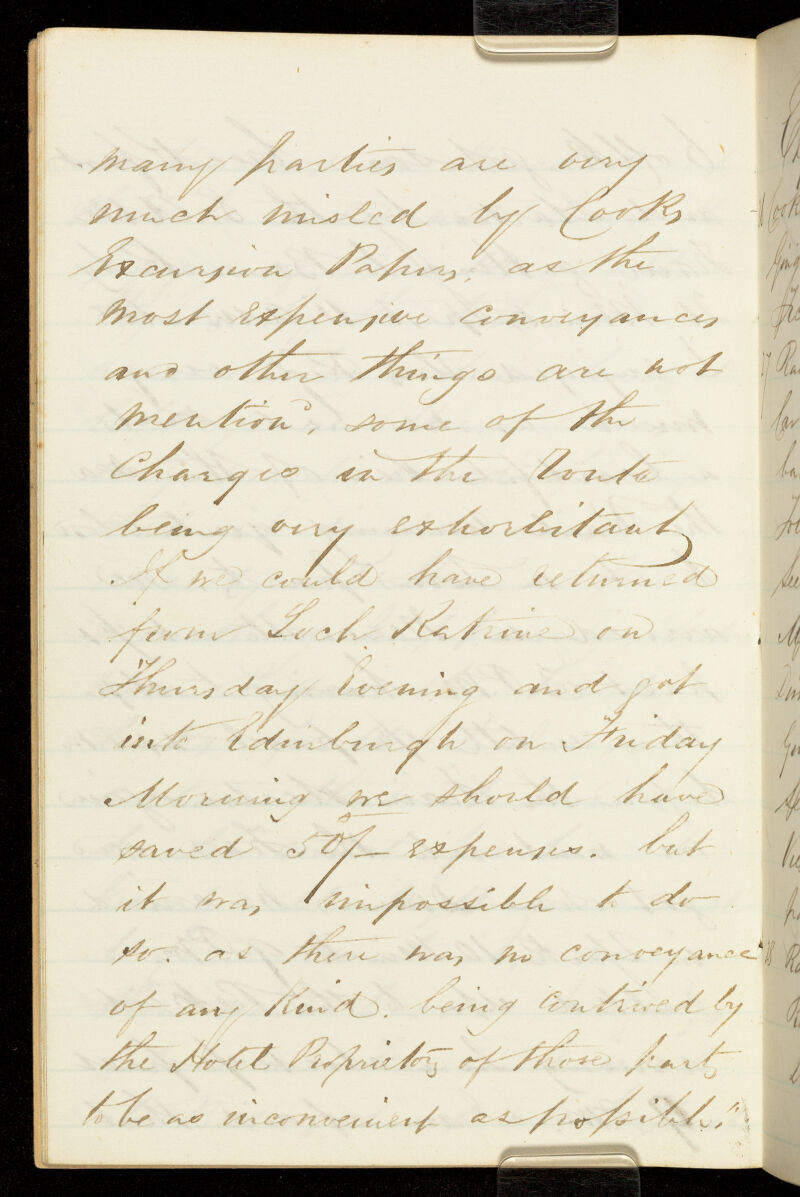 many parties are very
much misled by Cooks
Excursion Papers, as the
most expensive conveyances
and other things are not
mention'd, some of the
Charges in the Route
being very exhorbitant
If we could have returned
from Loch Katrine on
Thursday Evening and got
into Edinburgh on Friday
Morning we should have
saved 50/- expenses. but
it was impossible to do
so. as there was no conveyance
of any Kind. being contrived by
the Hotel Proprietors of those parts
to be as inconvenient as possible."